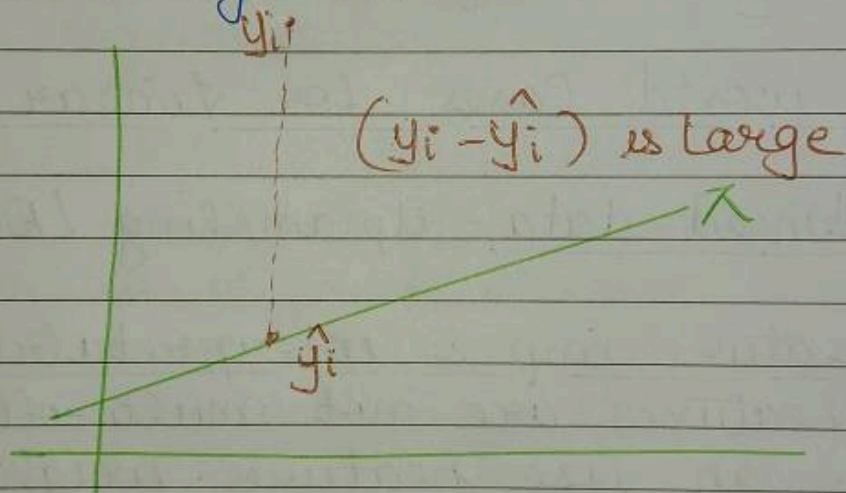 yi
(yi - ŷi) is large
π
ŷi